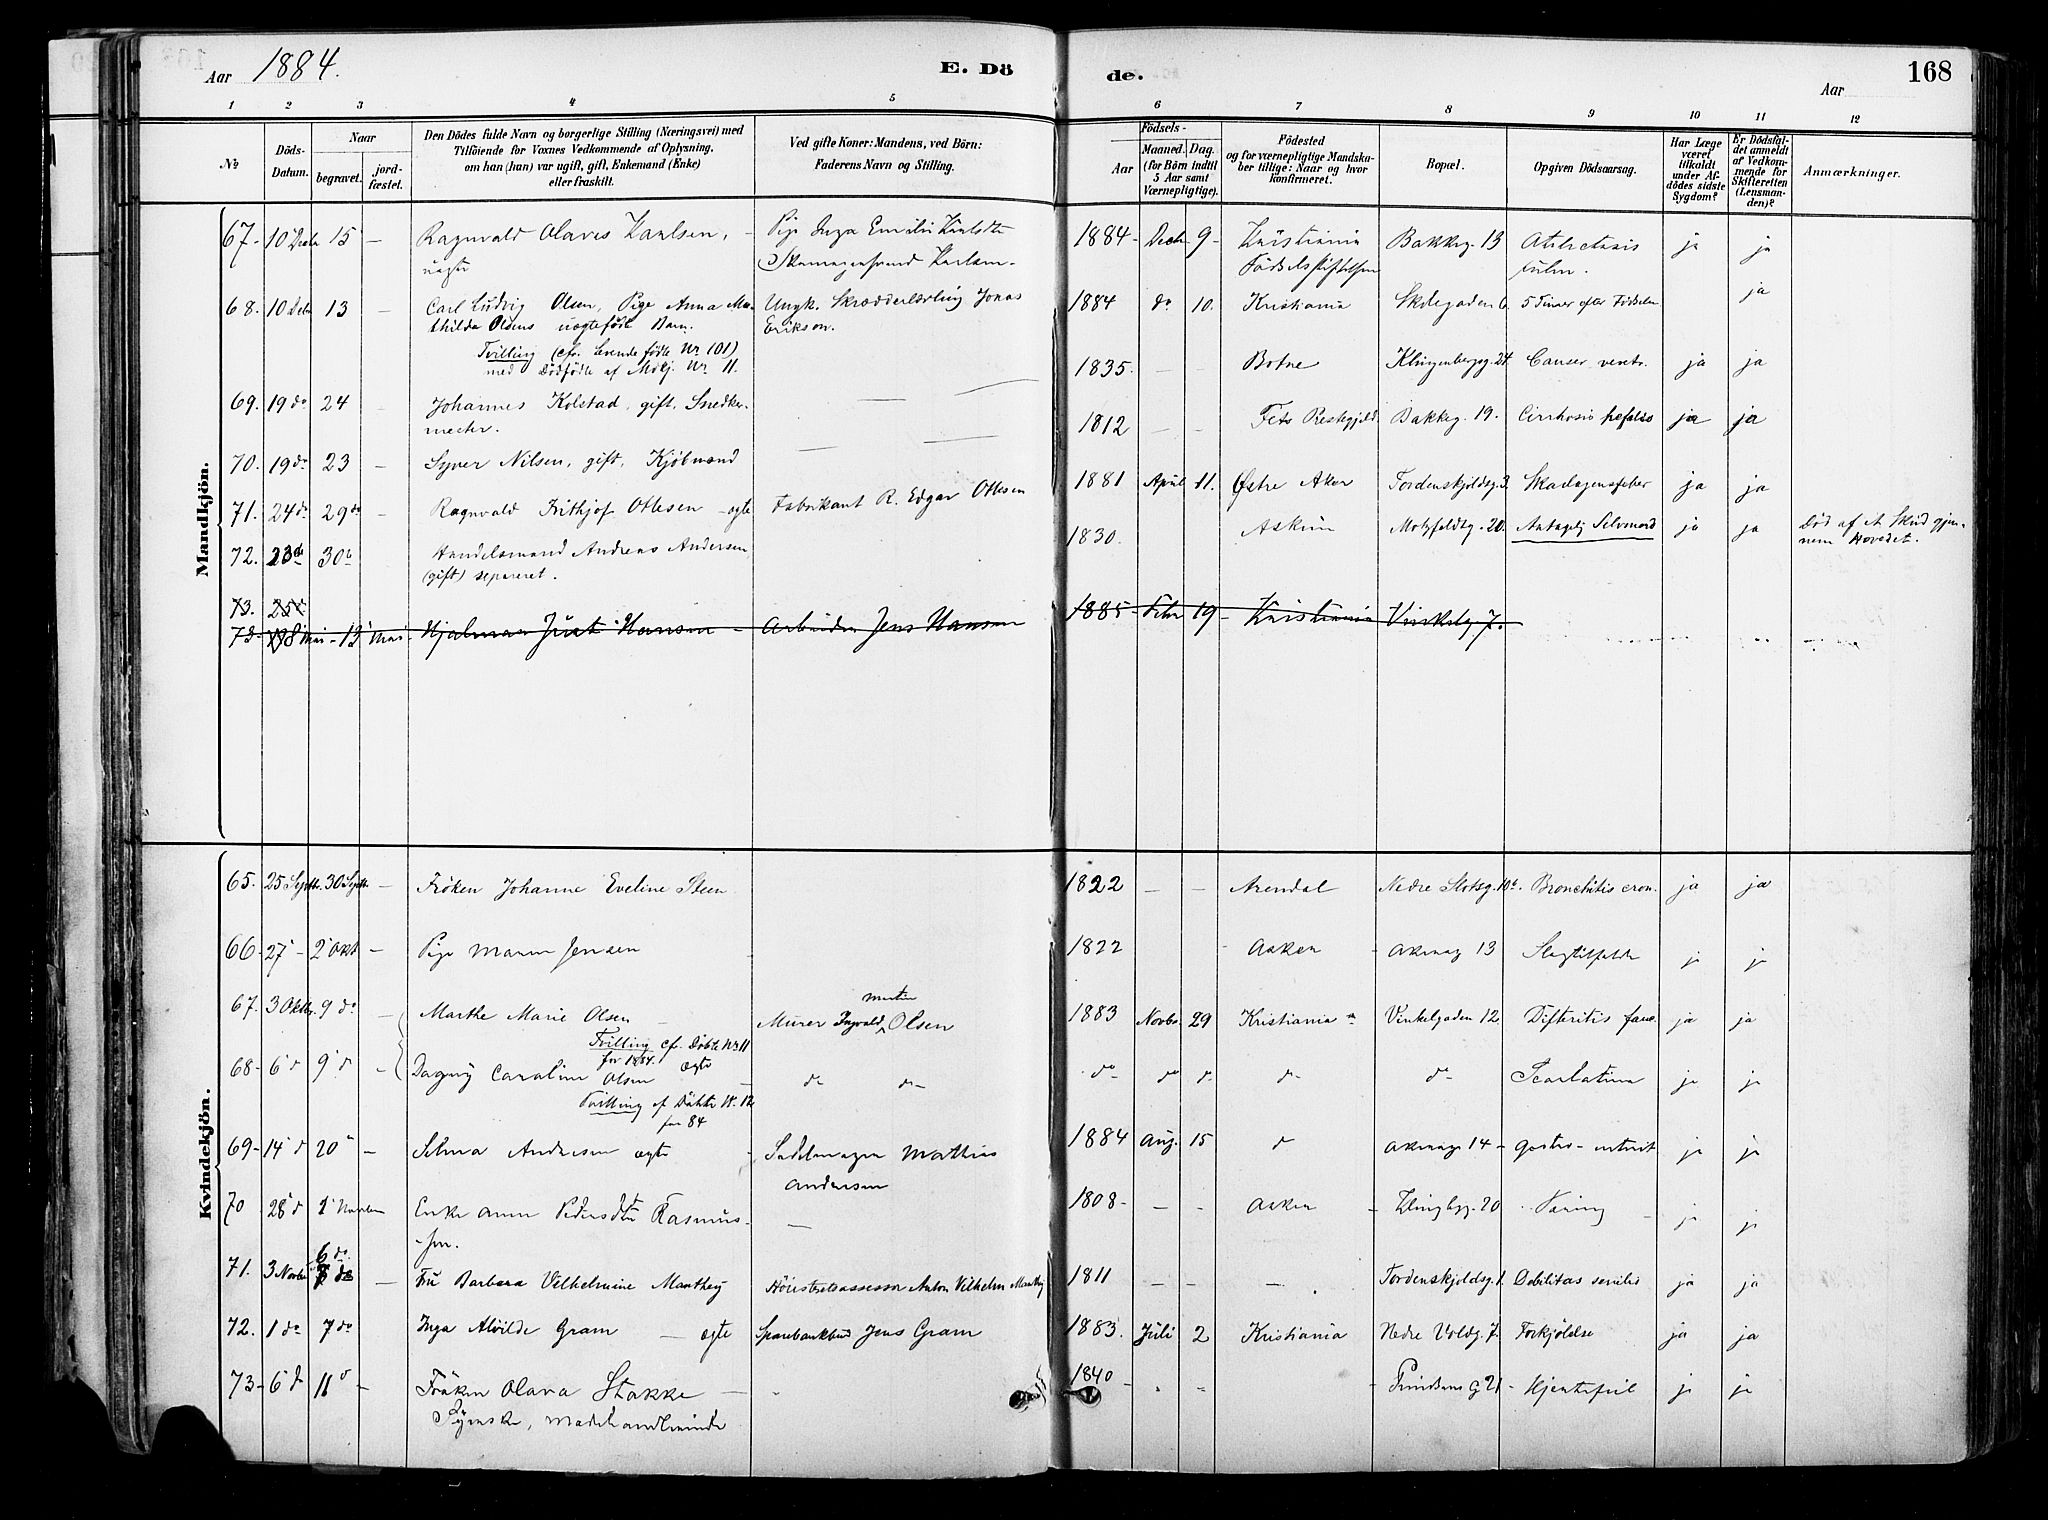 Aar 1884. E. Dö de. Aar 168
1 2 3 4 5 6 7 8 9 10 11 12
No Döds-Datum. Naar begravet. jordfæstet.
Den Dödes fulde Navn og borgerlige Stilling (Næringsvei) med
Tilföiende for Voxnes Vedkommende af Oplysning,
om han (hun) var ugift, gift, Enkemand (Enke)
eller fraskilt.
Ved gifte Koner: Mandens, ved Börn:
Faderens Navn og Stilling.
Födsels-
Aar Maaned. Dag.
(for Börn indtil
5 Aar samt
Værnepligtige).
Födested
og for værnepligtige Mandska-
ber tillige: Naar og hvor
konfirmeret.
Bopæl.
Opgiven Dödsaarsag.
Har Læge
været
tilkaldt
under Af-
dödes sidste
Sygdom?
Er Dödsfal-
det anmeldt
af Vedkom-
mende for
Skifteretten
(Lensman-
den)?
Anmærkninger.
Mandkjön.
67. 10 Decbr 15 — Ragnvald Olaves Karlsen, — Pige Inga Emilie 1884 Decbr 9 Kristiania Bakkeg. 13 ja ja
uægte Födselsstiftelsen
68. 10 Decbr 13 — Carl Ludvig Olsen, Pige Anna Ma- Ungk. Skrædderlærling Jonas 1884 do 10. Kristiania Skolegaden 6. 5 Timer efter Fødselen ja
thilde Olsens uægtefødte Barn. Erikson.
Tvilling (cfr. levende fødte No 101)
med Dødfødte af Mdkj. No 11.
69. 19 do 24 Johannes Kolstad, gift, Snedker- — 1835. — — Botne Klingenbergg. 24 Cancer ventr. ja ja
mester.
70. 19 do 23 — Syver Nilsen, gift, Kjøbmand — 1812 — — Fets Prestegjeld. Bakkeg. 19. Cirrhosis hepatis ja ja
71. 24 do 29 do — Ragnvald Frithjof Ottesen — ægte Fabrikant R. Edgar Ottesen 1881 April 11. Østre Aker Tordenskjoldsg. 3. Skarlagensfeber ja ja
72. 23 do 30 Handelsmand Andreas Andersen 1830. Askim Motzfeldtsg. 20. Antagelig Selvmord ja ja Død af et Skud gjen-
(gift) separeret. nem Hovedet.
73. 25
73. 8 Mai 13 Mai Hjalmar Just Hansen — Arbeider Jens Hansen 1885 Febr 19 Kristiania Vinkelg. 7.
Kvindekjön.
65. 25 Septbr. 30 Septbr. — Frøken Johanne Eveline Steen 1822 — — Arendal Nedre Slotsg. 10 b. Bronchitis cron. ja ja
66 27 — 2 Okt — Pige Maren Jensen 1822 Asker Akersg 13 Slagtilfælde ja ja
67. 3 Oktbr. 9 do — Marthe Marie Olsen — Murer Ingvald Martin Olsen 1883 Novbr. 29 Kristiania Vinkelgaden 12. Difteritis fauc. ja ja
Tvilling cf. Døbte No 11
for 1884.
68 6 d 9 d — Dagny Caroline Olsen ægte — do do do do do do do Scarlatina ja ja
Tvilling cf Døbte N. 12
for 84
69 14 d 20 — Selma Andersen ægte — Sadelmager Mathias 1884 Aug. 15 d Akersg 14 gastro-enterit ja ja
Andersen
70 28 d 1 Novbr Enke Anne Pedersdtr Rasmus- — 1808 — — Asker Klingbgg. 20 Tæring ja ja
sen.
71. 3 Novbr 6 do — Fru Barbara Vilhelmine Manthey Høiesteretsassessor Anton Vilhelm Manthey 1811 — — — Tordenskjoldsg. 1. Debilitas senilis ja ja
72. 1 do 7 do Inga Alvilde Gram — ægte Sparebankbud Jens Gram 1883. Juli 2 Kristiania Nedre Voldg. 7. Forkjølelse ja ja
73 6 d 11 d — Frøken Olava Stakke — 1840 Prindsens G 21 Hjertefeil ja ja